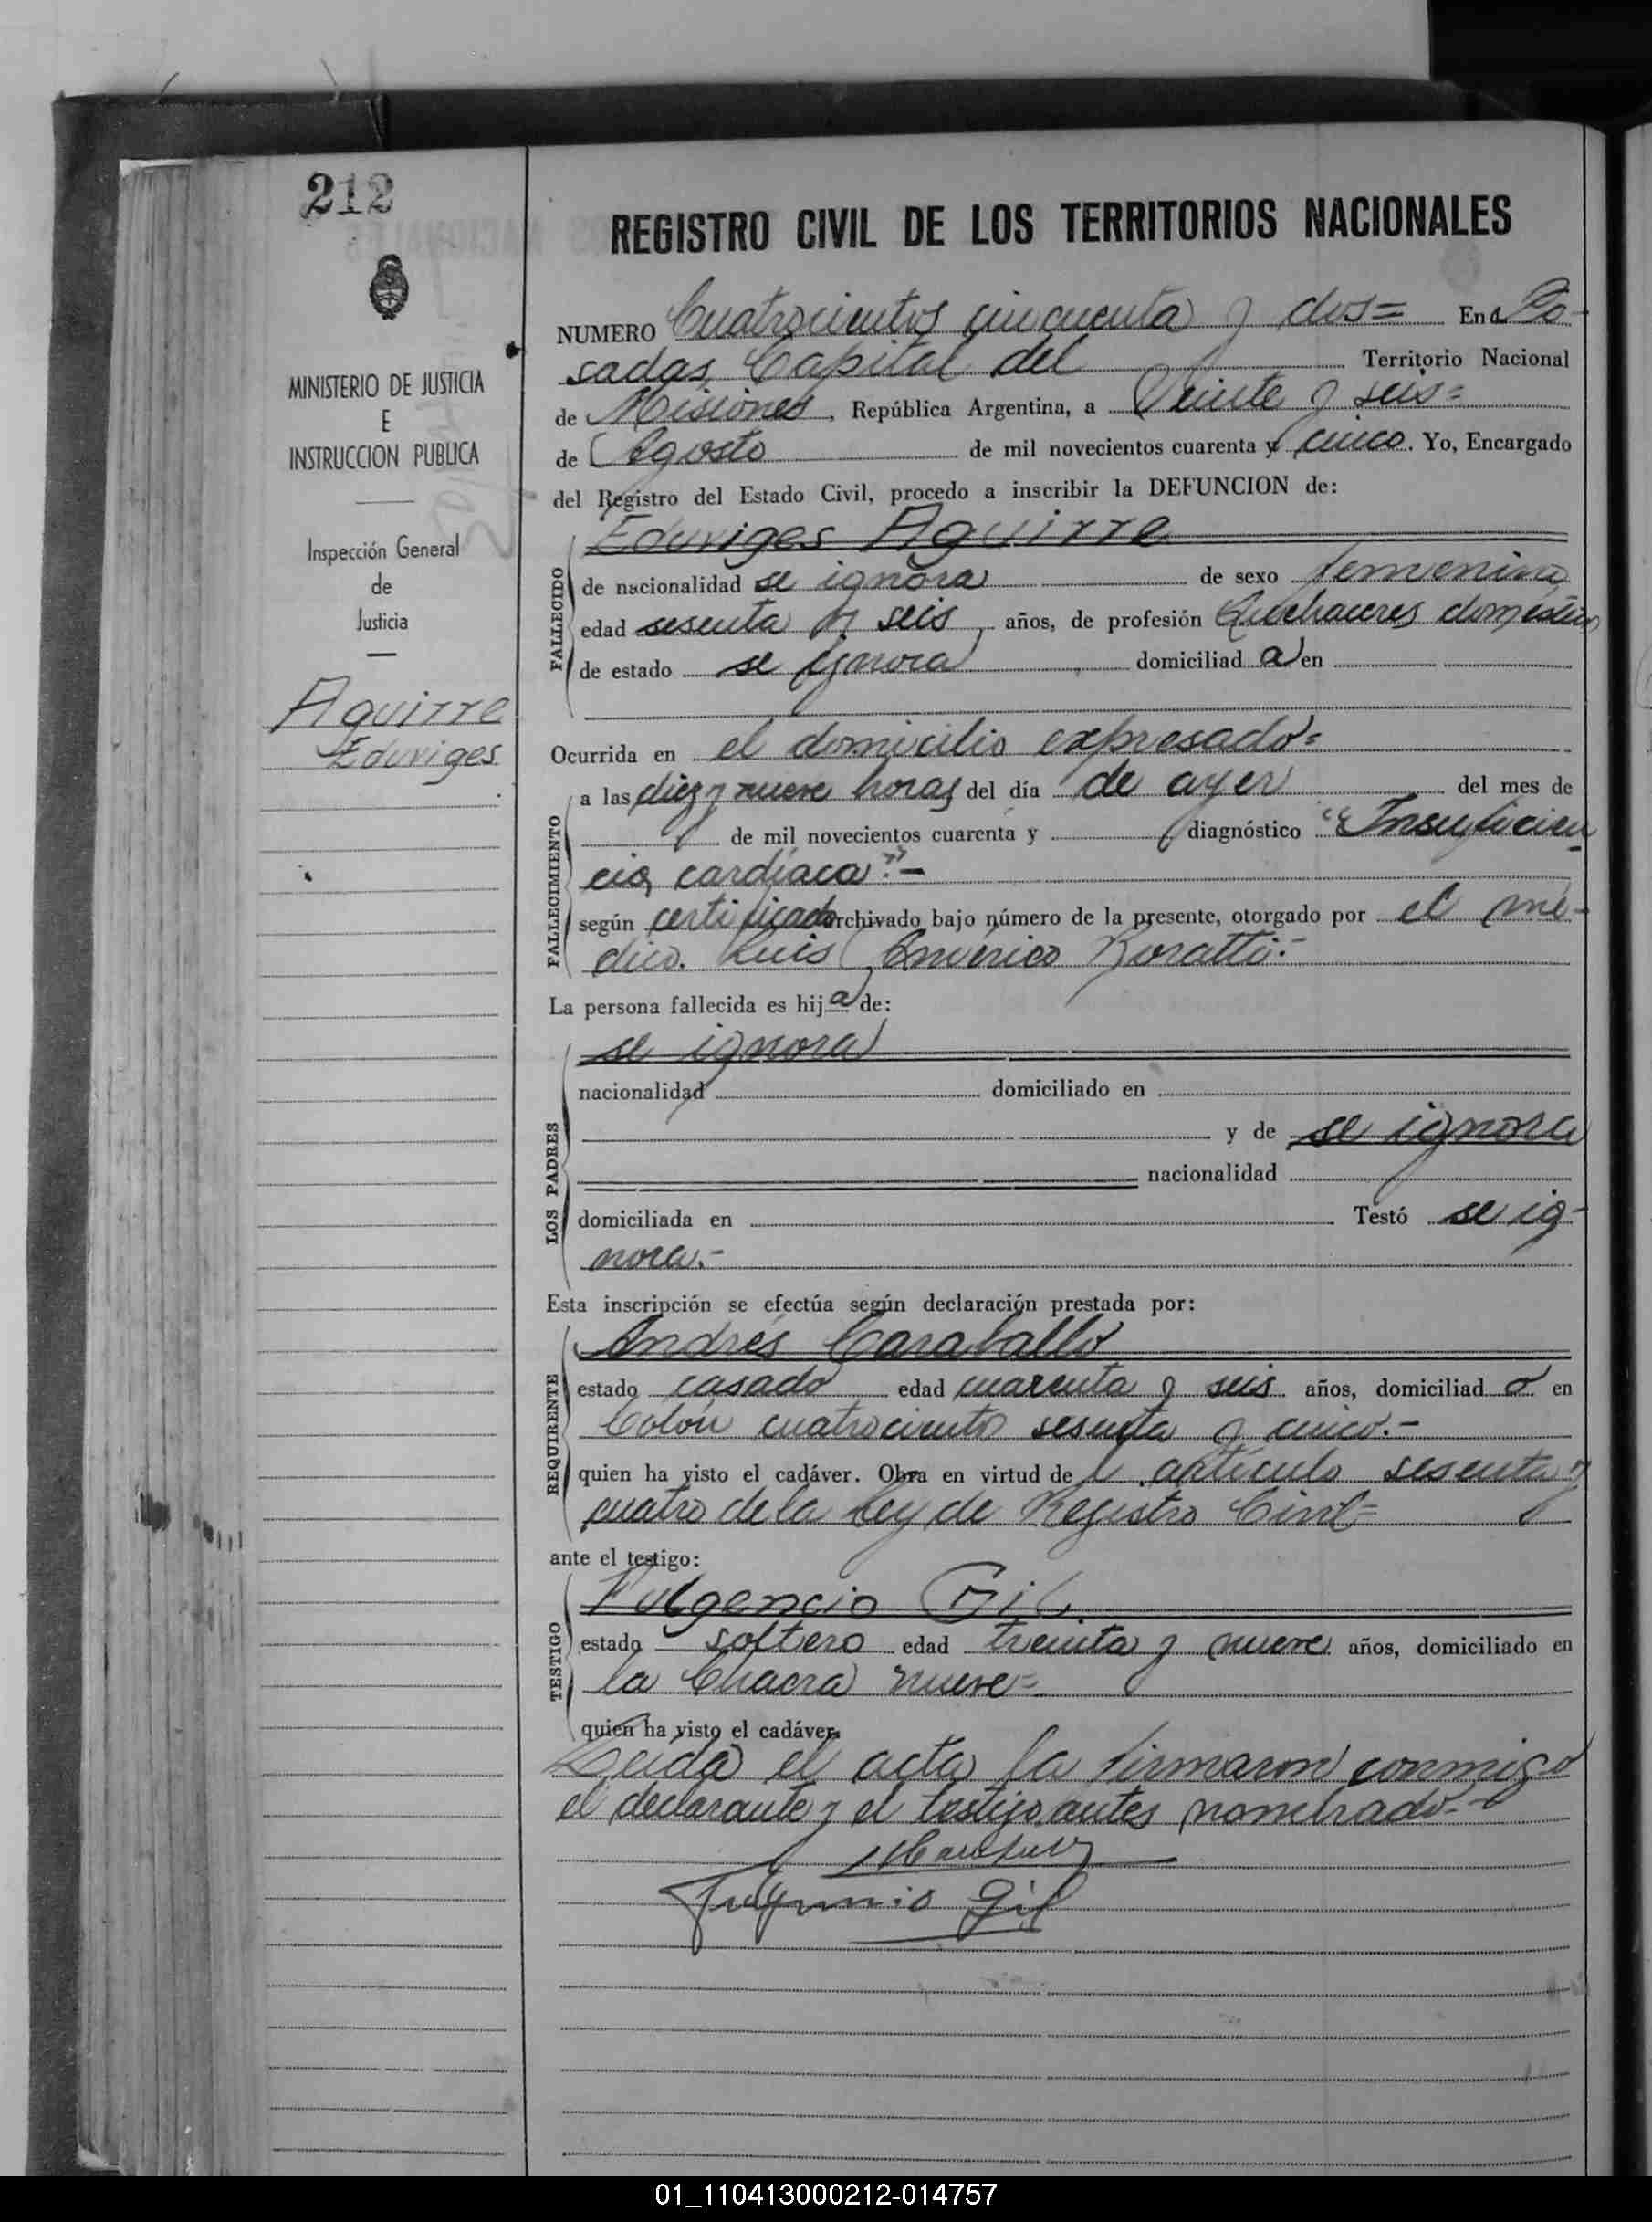 212
MINISTERIO DE JUSTICIA
E
INSTRUCCION PUBLICA
Inspección General
de
Justicia
Aguirre
Eduviges
REGISTRO CIVIL DE LOS TERRITORIOS NACIONALES
NUMERO Cuatrocientos cincuenta y dos= En Po-
sadas, Capital del Territorio Nacional
de Misiones, República Argentina, a Veinte y seis=
de Agosto de mil novecientos cuarenta y cinco. Yo, Encargado
del Registro del Estado Civil, procedo a inscribir la DEFUNCION de:
Eduviges Aguirre
FALLECIDO
de nacionalidad se ignora de sexo femenino
edad sesenta y seis años, de profesión Quehaceres domésticos
de estado se ignora domiciliad a en
Ocurrida en el domicilio expresado=
FALLECIMIENTO
a las diez y nueve horas del día de ayer del mes de
de mil novecientos cuarenta y diagnóstico "Insuficien
cia cardíaca".-
según certificado archivado bajo número de la presente, otorgado por el mé-
dico. Luis Américo
La persona fallecida es hij a de:
LOS PADRES
se ignora
nacionalidad domiciliado en
y de se ignora
nacionalidad
domiciliada en Testó se ig-
nora.-
Esta inscripción se efectúa según declaración prestada por:
REQUIRENTE
Andrés Caraballo
estado casado edad cuarenta y seis años, domiciliad o en
Colón cuatrociento sesenta y cinco.-
quien ha visto el cadáver. Obra en virtud de l artículo sesenta y
cuatro de la Ley de Registro Civil=
ante el testigo:
TESTIGO
Fulgencio Gil
estado soltero edad treinta y nueve años, domiciliado en
la Chacra nueve=
quien ha visto el cadáver.
Leída el acta la firmaron conmigo
el declarante y el testigo antes nombrado.-
Fulgencio Gil
01_110413000212-014757